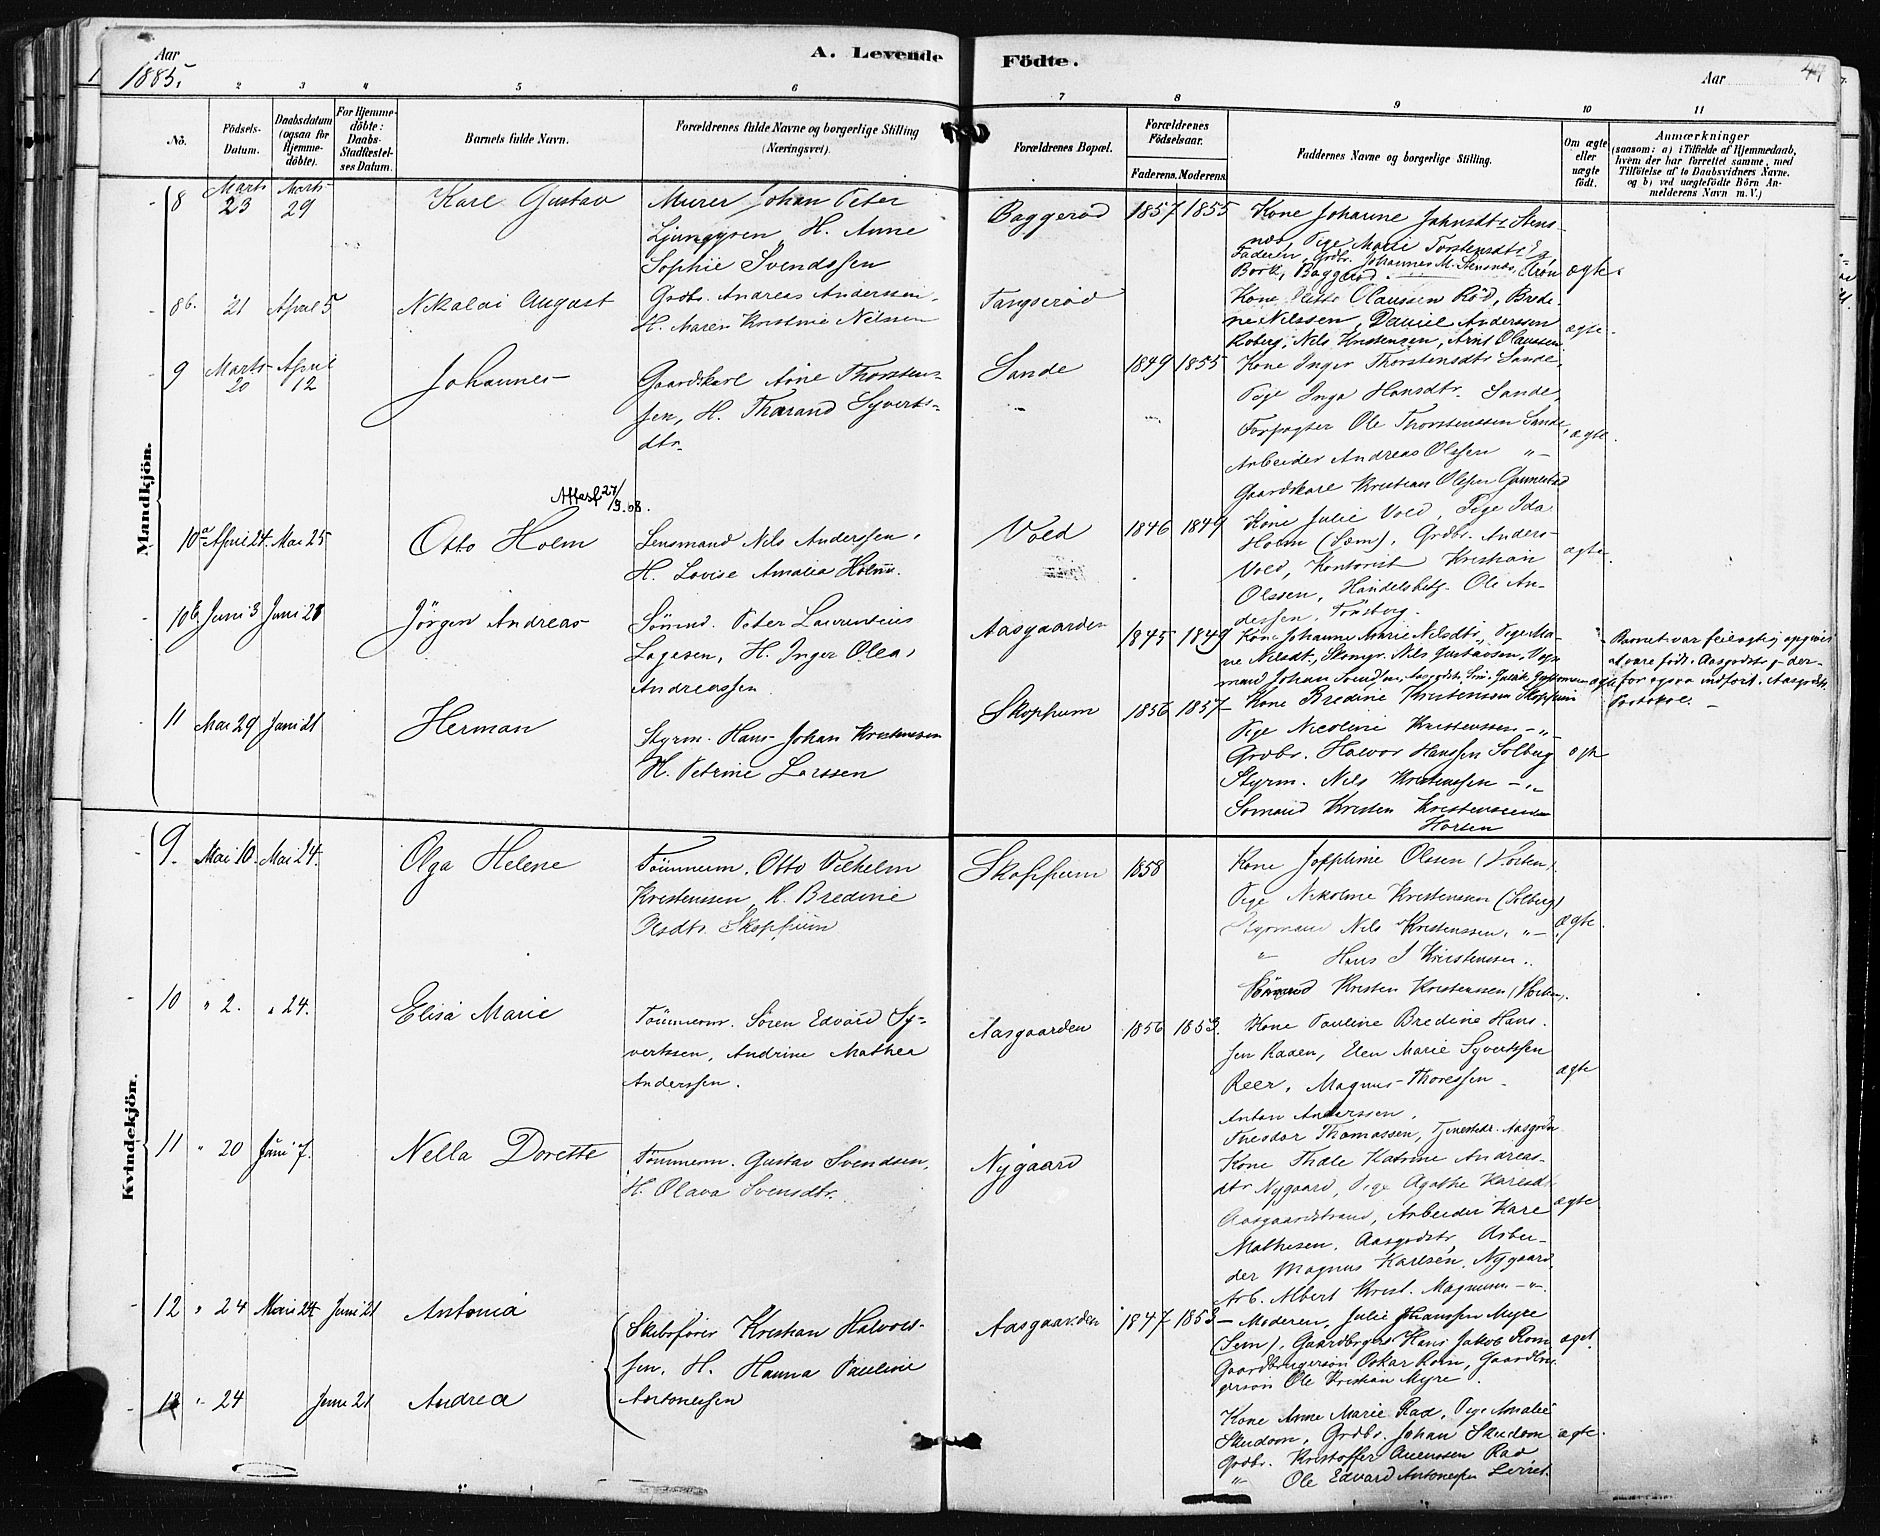 Aar
1885.
A. Levende
Födte.
Aar
47
2
3
4
5
6
7
8
9
10
11
No.
Födsels-
Datum.
Daabsdatum
(ogsaa for
Hjemme-
döbte).
For Hjemme-
döbte:
Daabs-
Stadfæstel-
ses Datum.
Barnets fulde Navn.
Forældrenes fulde Navne og borgerlige Stilling
(Næringsvei).
Forældrenes Bopæl.
Forældrenes
Födselsaar.
Faderens.
Moderens.
Faddernes Navne og borgerlige Stilling.
Om ægte
eller
uægte
födt.
Anmærkninger
(saasom: a) i Tilfælde af Hjemmedaab,
hvem der har forrettet samme, med
Tilföielse af to Daabsvidners Navne,
og b) ved uægtefödte Börn An-
melderens Navn m. V.)
Mandkjön.
8
Marts
23
Marts
29
Karl Gustav
Murer Johan Peter
Ljunggren, H. Anne
Sophie Svendssen
Baggeröd
1857
1855
Kone Johanne Johnsdtr Stens-
næs Pige Marie Torstensdtr
Faderen, Grdbr. Johannes M. Stensnæs,
Bork, Baggeröd.
ægte.
8b.
21
April 5
Nikolai August
Grdbr. Andreas Anderssen
H. Maren Kristine Nilssen
Tangseröd
Kone Olaussen Röd, Brede-
ne Nilssen, Daniel Anderssen
Roberg, Nils Kristensen, Arnt Olaussen
ægte.
9
Marts
20
April
12
Johannes
Gaardskarl Arne Thorsten-
sen, H. Tharand Syverts-
dtr.
Sande
1849
1855
Kone Inger Thorstensdtr Sande,
Pige Inga Hansdtr. Sande,
Forpagter Ole Thorstenssen Sande,
Arbeider Andreas Olssen "-
Gaardskarl Kristian Olssen Gunnestad
ægte.
Attest 27/3.08.
10a
April 24.
Mai 25
Otto Holm
Lensmand Nils Anderssen,
H. Lovise Amalia Holm.
Vold
1846
1849
Kone Julie Vold, Pige Ida
Holm (Sem), Grdbr. Anders
Vold, Kontorist Kristian
Olssen, Handelsbetj. Ole An-
dersen, Tönsberg.
ægte.
10b
Juni 3
Juni 28
Jörgen Andreas
Sömd. Peter Laurentius
Lagesen, H. Inger Olea
Andreassen
Aasgaarden
1845
1849
Kone Johanne Marie Nilsdtr, Pige Ma-
ne Nilsdt., Skomgr. Nils Gustavsen, Vogn
mand Johan Svendsen,
ægte
Barnet var feilagtig opgivet
at være födt i Aasgrdstr, og der-
for ogsaa indfört i Aasgrdstr.
Protokol. -
11
Mai 29
Juni 21
Herman
Styrm. Hans Johan Kristenssen
H. Petrine Larssen
Skoppum
1856
1857
Kone Bredine Kristenssen Skoppum
Pige Nicoline Kristenssen -"-
Grdbr. Halvor Hanssen Solberg
Styrm. Nils Kristenssen -"-
Sömand Kristen Kristenssen
Horten
ægte
Kvindekjön.
9.
Mai 10.
Mai 24.
Olga Helene
Tömmerm. Otto Vilhelm
Kristenssen, H. Bredine
Olsdtr. Skoppum
Skoppum
1858
Kone Josephine Olssen (Horten).
Pige Nikoline Kristenssen (Solberg)
Styrmand Nils Kristenssen, "-
" Hans J Kristenssen "
Sömand Kristen Kristenssen (Horten).
ægte.
10
" 2.
" 24.
Elisa Marie
Tömmerm. Sören Edvard Sy-
vertssen, Andrine Mathea
Anderssen.
Aasgaarden
1856
1853.
Kone Pauline Bredine Hans-
sen Raaen, Elen Marie Syvertssen
Reer, Magnus Thoressen
Anton Anderssen,
Theodor Thomassen, Tjenestedr. Aasgrdn
ægte
11
" 20
Juni 7.
Nella Dorette
Tömmerm. Gustav Svendsen,
H. Olava Svensdtr.
Nygaard
Kone Thale Katrine Andreas-
dtr Nygaard, Pige Agathe Karlsd.
Aasgaardstrand, Arbeider Karl
Mathisen, Aasgrdstr, Arbei-
der Magnus Karlsen, Nygaard,
Arb. Albert Krist. Magnussen -"-
ægte.
12
" 24
Mai 24
Juni 21
Antonia
Skibsförer Kristian Halvor-
sen, H. Hanna Pauline
Antonessen
Aasgaarden
1847
1853
Moderen, Julie Hanssen Myre
(Sem), Gaardbruger Hans Jakob Rom
Gaardbrugersön Oskar Rom, Gaardbru-
gersön Ole Kristian Myre.
ægt.
13
" 24
Juni 21
Andrea
Kone Anne Marie Rad, Pige Amalie
Skudom, Grdbr. Johan Skudom
Grdbr. Kristoffer Auenssen Rad
" Ole Edvard Antonessen
ægte.